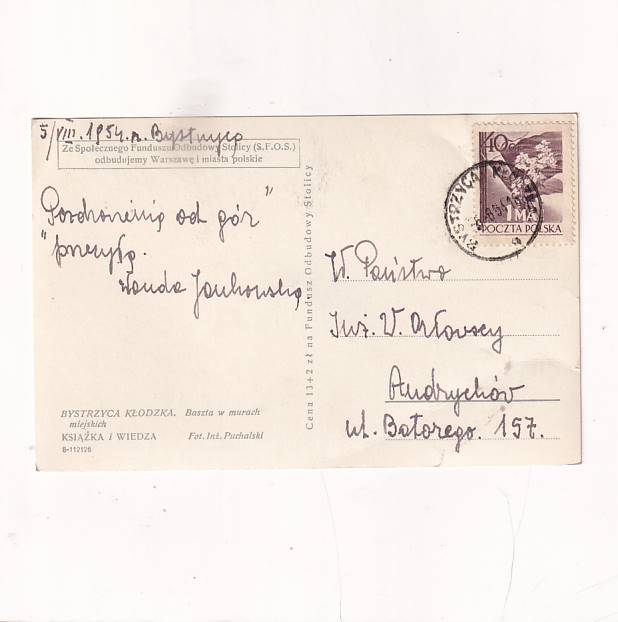 5/VIII.1954.r. Bystrzyca
Ze Społecznego Funduszu Odbudowy Stolicy (S.F.O.S.)
odbudujemy Warszawę i miasta polskie
Pozdrowienia od gór"
"przesyła.
Wanda Jankowska
BYSTRZYCA KŁODZKA. Baszta w murach
miejskich
KSIĄŻKA i WIEDZA Fot. Inż. Puchalski
B-112126
Cena 13+2 zł na Fundusz Odbudowy Stolicy
40
1 MAJ
POCZTA POLSKA
BYSTRZYCA
W. Państwo
Inż. W. Orłowscy
Andrychów
ul. Batorego. 157.